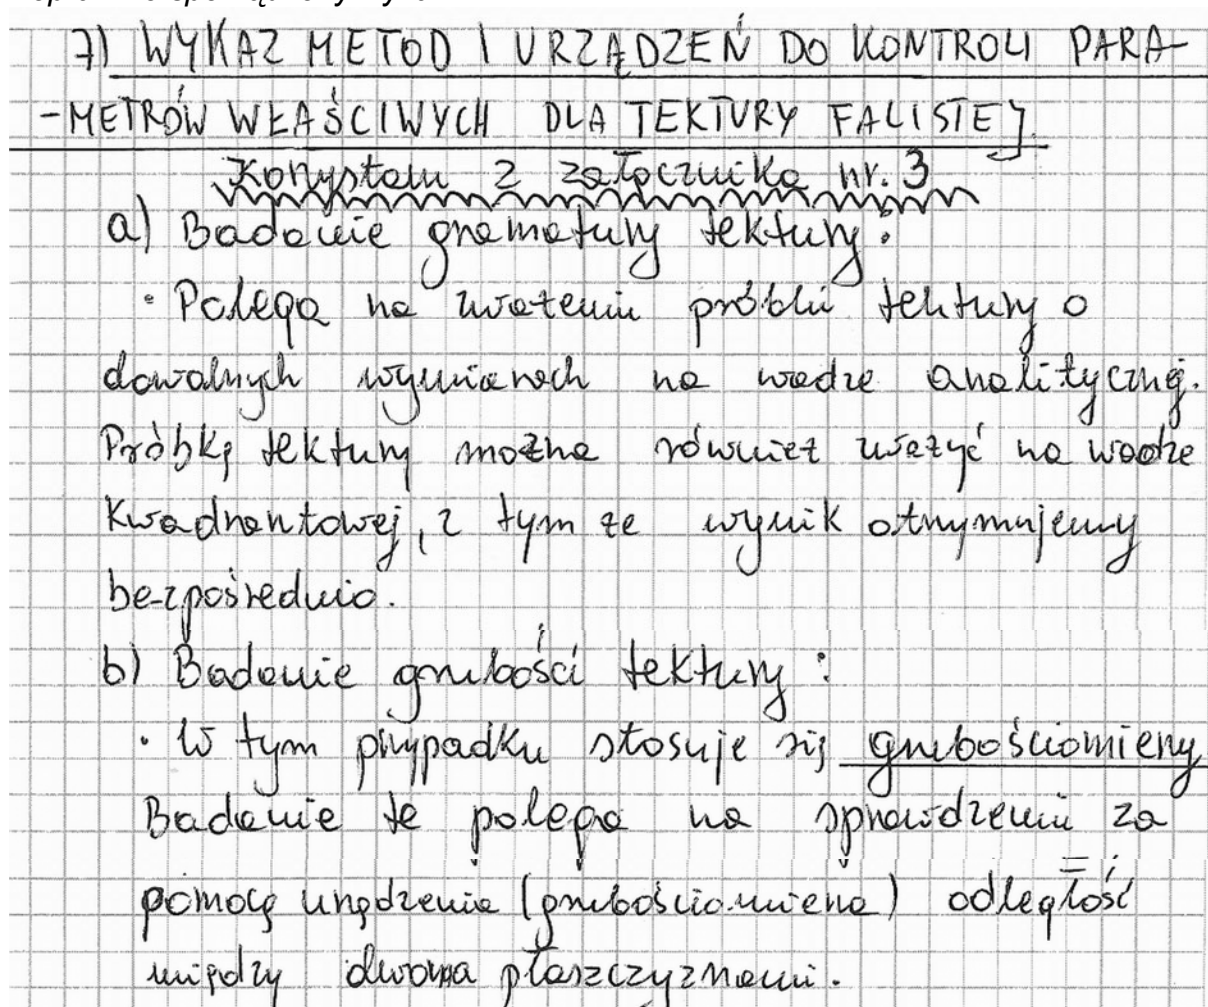 7) WYKAZ METOD I URZĄDZEŃ DO KONTROLI PARA-
-METRÓW WŁAŚCIWYCH DLA TEKTURY FALISTEJ
Korzystam z załącznika nr. 3
a) Badanie gramatury tektury:
• Polega na zważeniu próbki tektury o
dowolnych wymiarach na wadze analitycznej.
Próbkę tektury można również zważyć na wadze
kwadrantowej, z tym że wynik otrzymujemy
bezpośrednio.
b) Badanie grubości tektury:
• W tym przypadku stosuje się grubościomierzy
Badanie te polega na sprawdzeniu za
pomocą urządzenia (grubościomierza) odległość
między dwoma płaszczyznami.